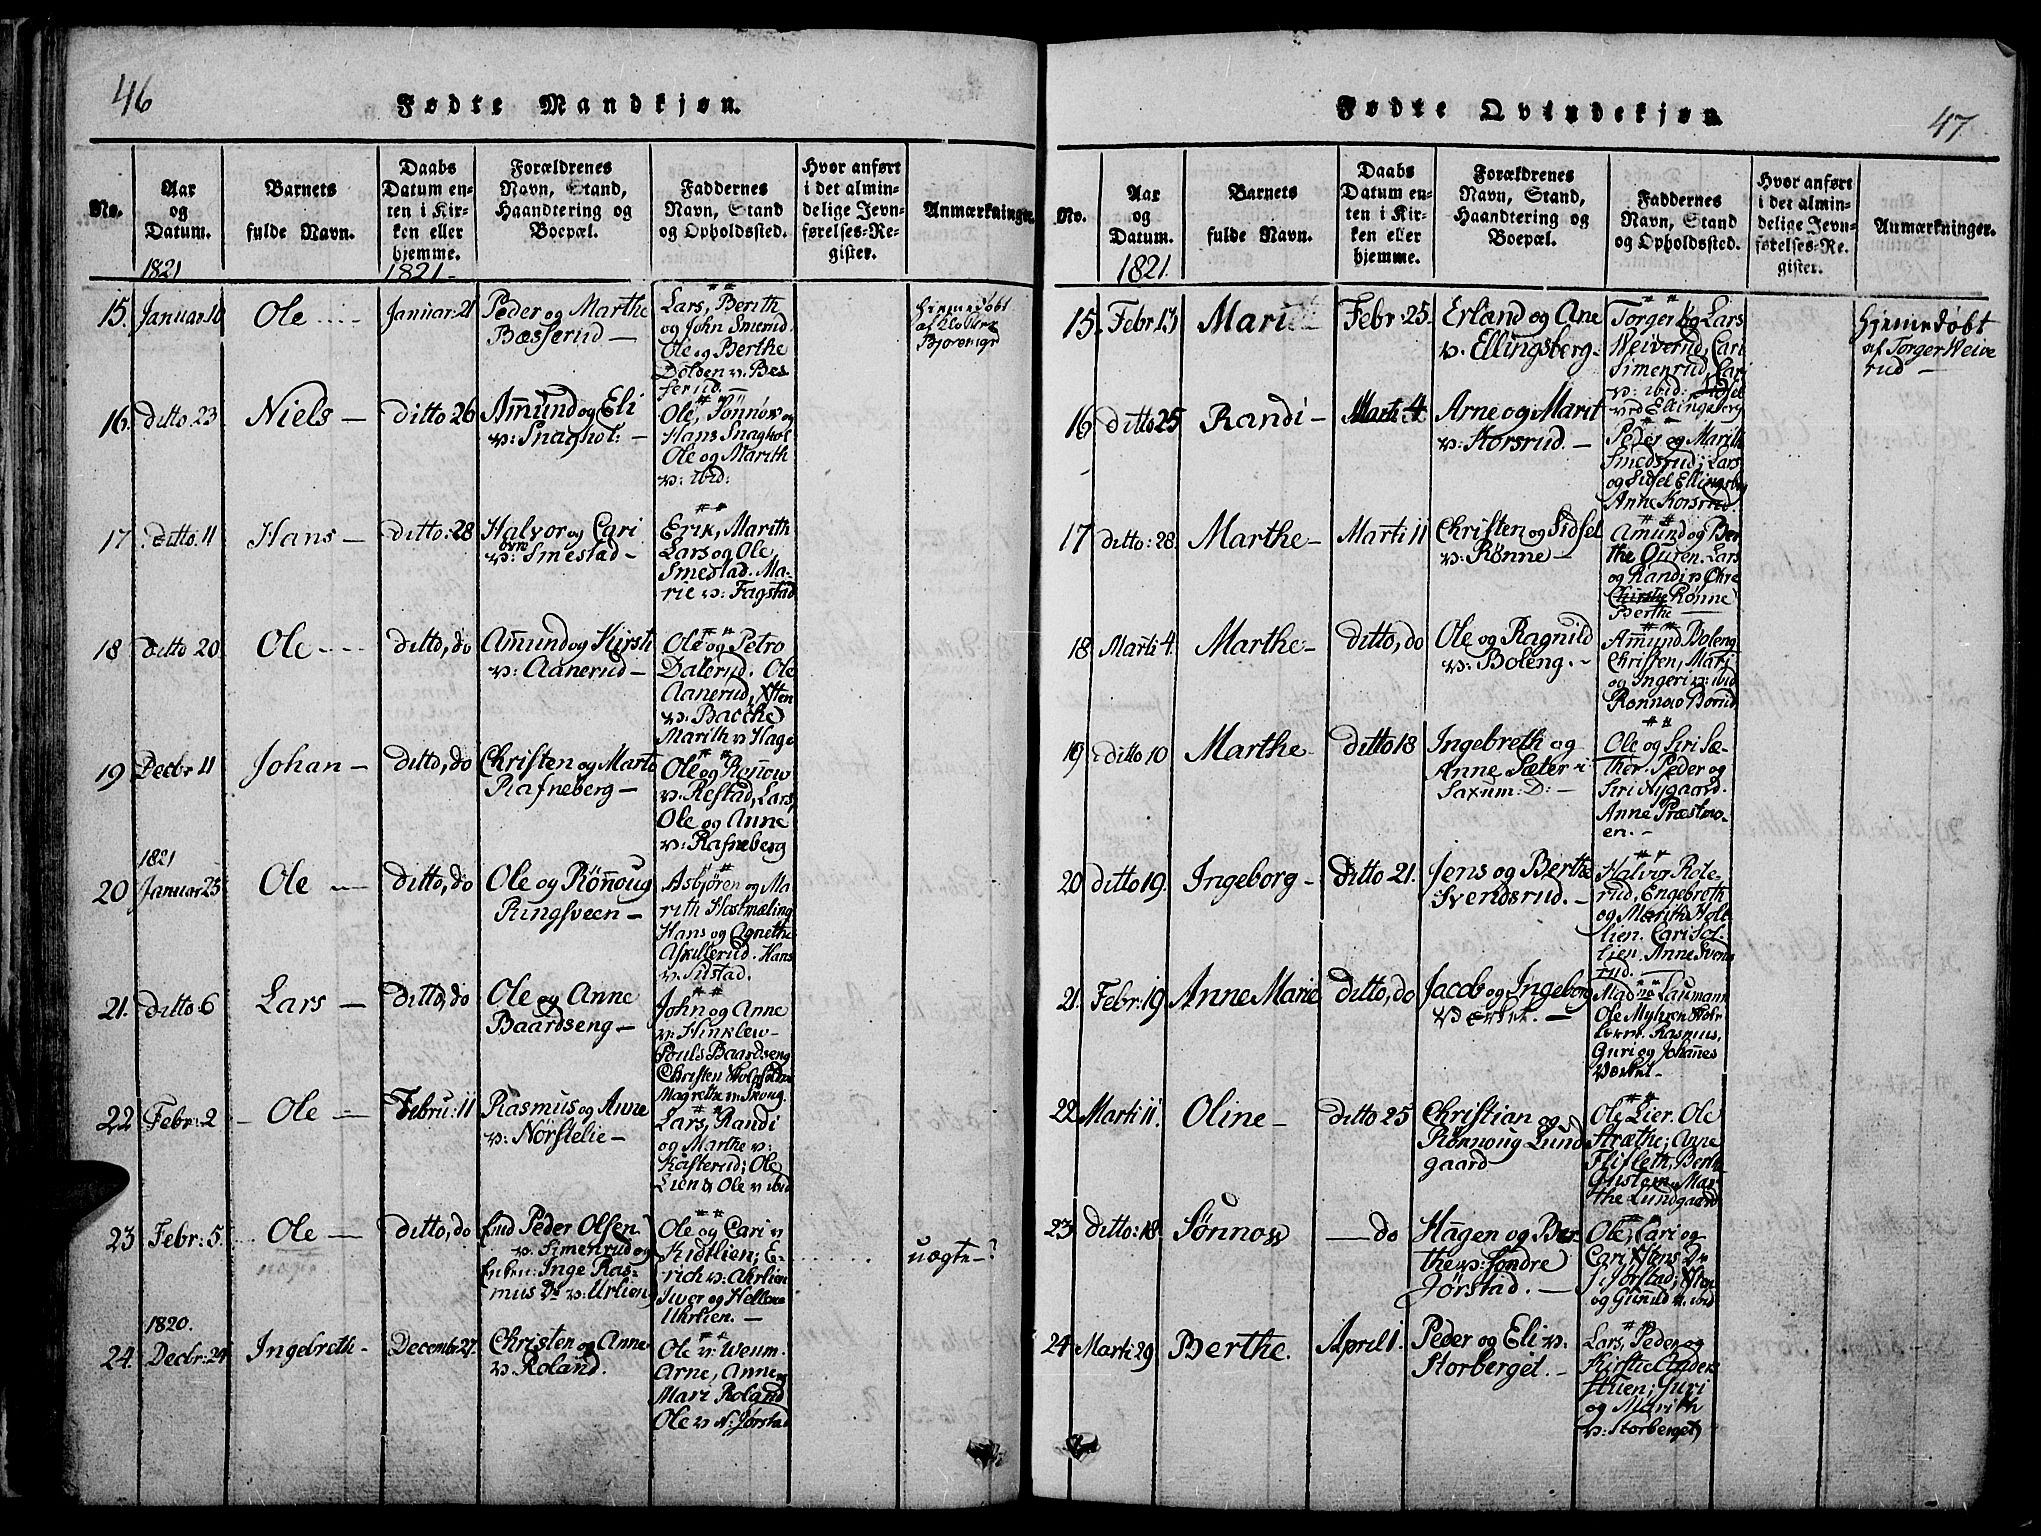 46
Fødte Mandkjøn.
No.
Aar
og
Datum.
Barnets
fulde Navn.
Daabs
Datum en-
ten i Kir-
ken eller
hjemme.
Forældrenes
Navn, Stand,
Haandtering og
Boepæl.
Faddernes
Navn, Stand
og Opholdssted.
Hvor anført
i det almin-
delige Jevn-
førelses-Re-
gister.
Anmærkninger.
1821
1821
15. Januar 10
Ole
Januar 21
Peder og Marthe
Bæsserud
Lars, Berith
og John Smerud
Ole og Berthe
Dolden v. Bes
serud.
Hjemmedøbt
16. ditto 23
Niels
ditto 26
Amund og Eli
v: Snaghol:
Ole, Sønnøv og
Hans Snaghol
Ole og Marith
v: ibid:
17. ditto 11
Hans
ditto: 28
Halvor og Cari
v: Smestad
Erik, Marith
Lars og Ole,
Smestad. Ma-
rie v: Fagstad
18 ditto 20
Ole
ditto, do
Amund og Kirsti
v: Aanerud
Ole og Petro
Dalerud. Ole
Aanerud, Xsten
v: Bacche
Marith v Hage
19 Decbr 11
Johan
ditto, do
Christen og Marte
Rafneberg
Ole og Ronnow
v: Restad, Lars,
Ole og Anne
v: Rafneberg
1821
20 Januar 25
Ole
ditto, do
Ole og Rønnoug
Ringsveen
Asbjøren og Ma
rith Hostmæling
Hans og Agnethe
Askillerud. Hans
v. Sustad.
21. ditto: 6
Lars
ditto, do
Ole og Anne
Baardseng
John og Anne
v: Hinklew
Pouls Baardseng
Christen
Magrethe v: Skoug.
22 Febr: 2
Ole
Febru: 11
Rasmus og Anne
v: Nørstelie
Lars, Randi
og Marthe v:
Kasterud; Ole
Lien & Ole v ibid
23 Febr: 5.
Ole
uægte
ditto, do
Peder Olsen
v. Simenrud og
Inge Ras-
mus Dr v: Urlien
Ole og Cari v
Kidtlien; E-
rich v: Ahrlien
Iwer og Hellene
Uhrlien.
uægte
1820.
24. Decbr: 24
Ingebreth
Decemb: 27.
Christen og Anne
v: Roland.
Ole v: Weum.
Arne, Anne,
Mari Roland
Ole v N: Jørstad
47
Fødte Qvindekjøn.
No.
Aar
og
Datum.
Barnets
fulde Navn.
Daabs
Datum en-
ten i Kir-
ken eller
hjemme.
Forældrenes
Navn, Stand,
Haandtering og
Boepæl.
Faddernes
Navn, Stand
og Opholdssted.
Hvor anført
i det almin-
delige Jevn-
førelses-Re-
gister.
Anmærkninger.
1821.
15. Febr: 13
Mari
Febr: 25.
Erland og Ane
v. Ellingsberg
Torger & Lars
Weiverud, Cari
Simenrud, Cari
v: ibid:
ved Ellingsberg
Hjemmedøbt
af Torger Weive
rud
16 ditto 25
Randi
Marti 4.
Arne og Marit
v: Korsrud.
Peder og Marith
Smedsrud; Lars
og Sidsel Ellingsberg
Anne Korsrud
17 ditto: 28.
Marthe
Marti 11
Christen og Sidsel
v: Rønne
Amund og Ber
the Ouren. Lars
og Randi v:
Rønne
Berthe
18 Marti 4.
Marthe
ditto, do
Ole og Ragnild
v: Boleng.
Amund Boleng
Christen, Mari
og Ingeri v: ibid
Rønnow Borud
19 ditto 10
Marthe
ditto 18
Ingebreth og
Anne Sæter i
Saxum: D:
Ole og Siri Sæ-
ther. Peder og
Siri Nygaard.
Anne Præstmo-
en.
20 ditto 19.
Ingeborg
ditto 21.
Jens og Berthe
Svendsrud.
Halvor Role
rud, Engebreth
og Marith Hole
lien. Cari Sol-
lien. Anne Svens
rud.
21. Febr: 19
Anne Marie
ditto, do
Jacob og Ingeborg
Værket.
Madme Laumann
Ole Mylven
Rasmus,
Guri og Johannes
Værket
22 Marti 11.
Oline
ditto 25
Christian og
Rønnoug Lund
gaard
Ole Lier. Ole
Stræthe; Anne
Flifleth, Berth
Mar
the Lundgaard
23 ditto: 18.
Sønnow
do
Hagen og Ber
the v: Søndre
Jørstad.
Ole, Cari og
Cari Xstens Dr
S: Jørstad; Xsten
og Gunild v. ibid
24 Marti 29
Berthe.
April 1.
Peder og Eli v:
Storberget.
Lars, Peder og
Kirstie Anders
Stuen; Guri
og Marith
v: Storberget